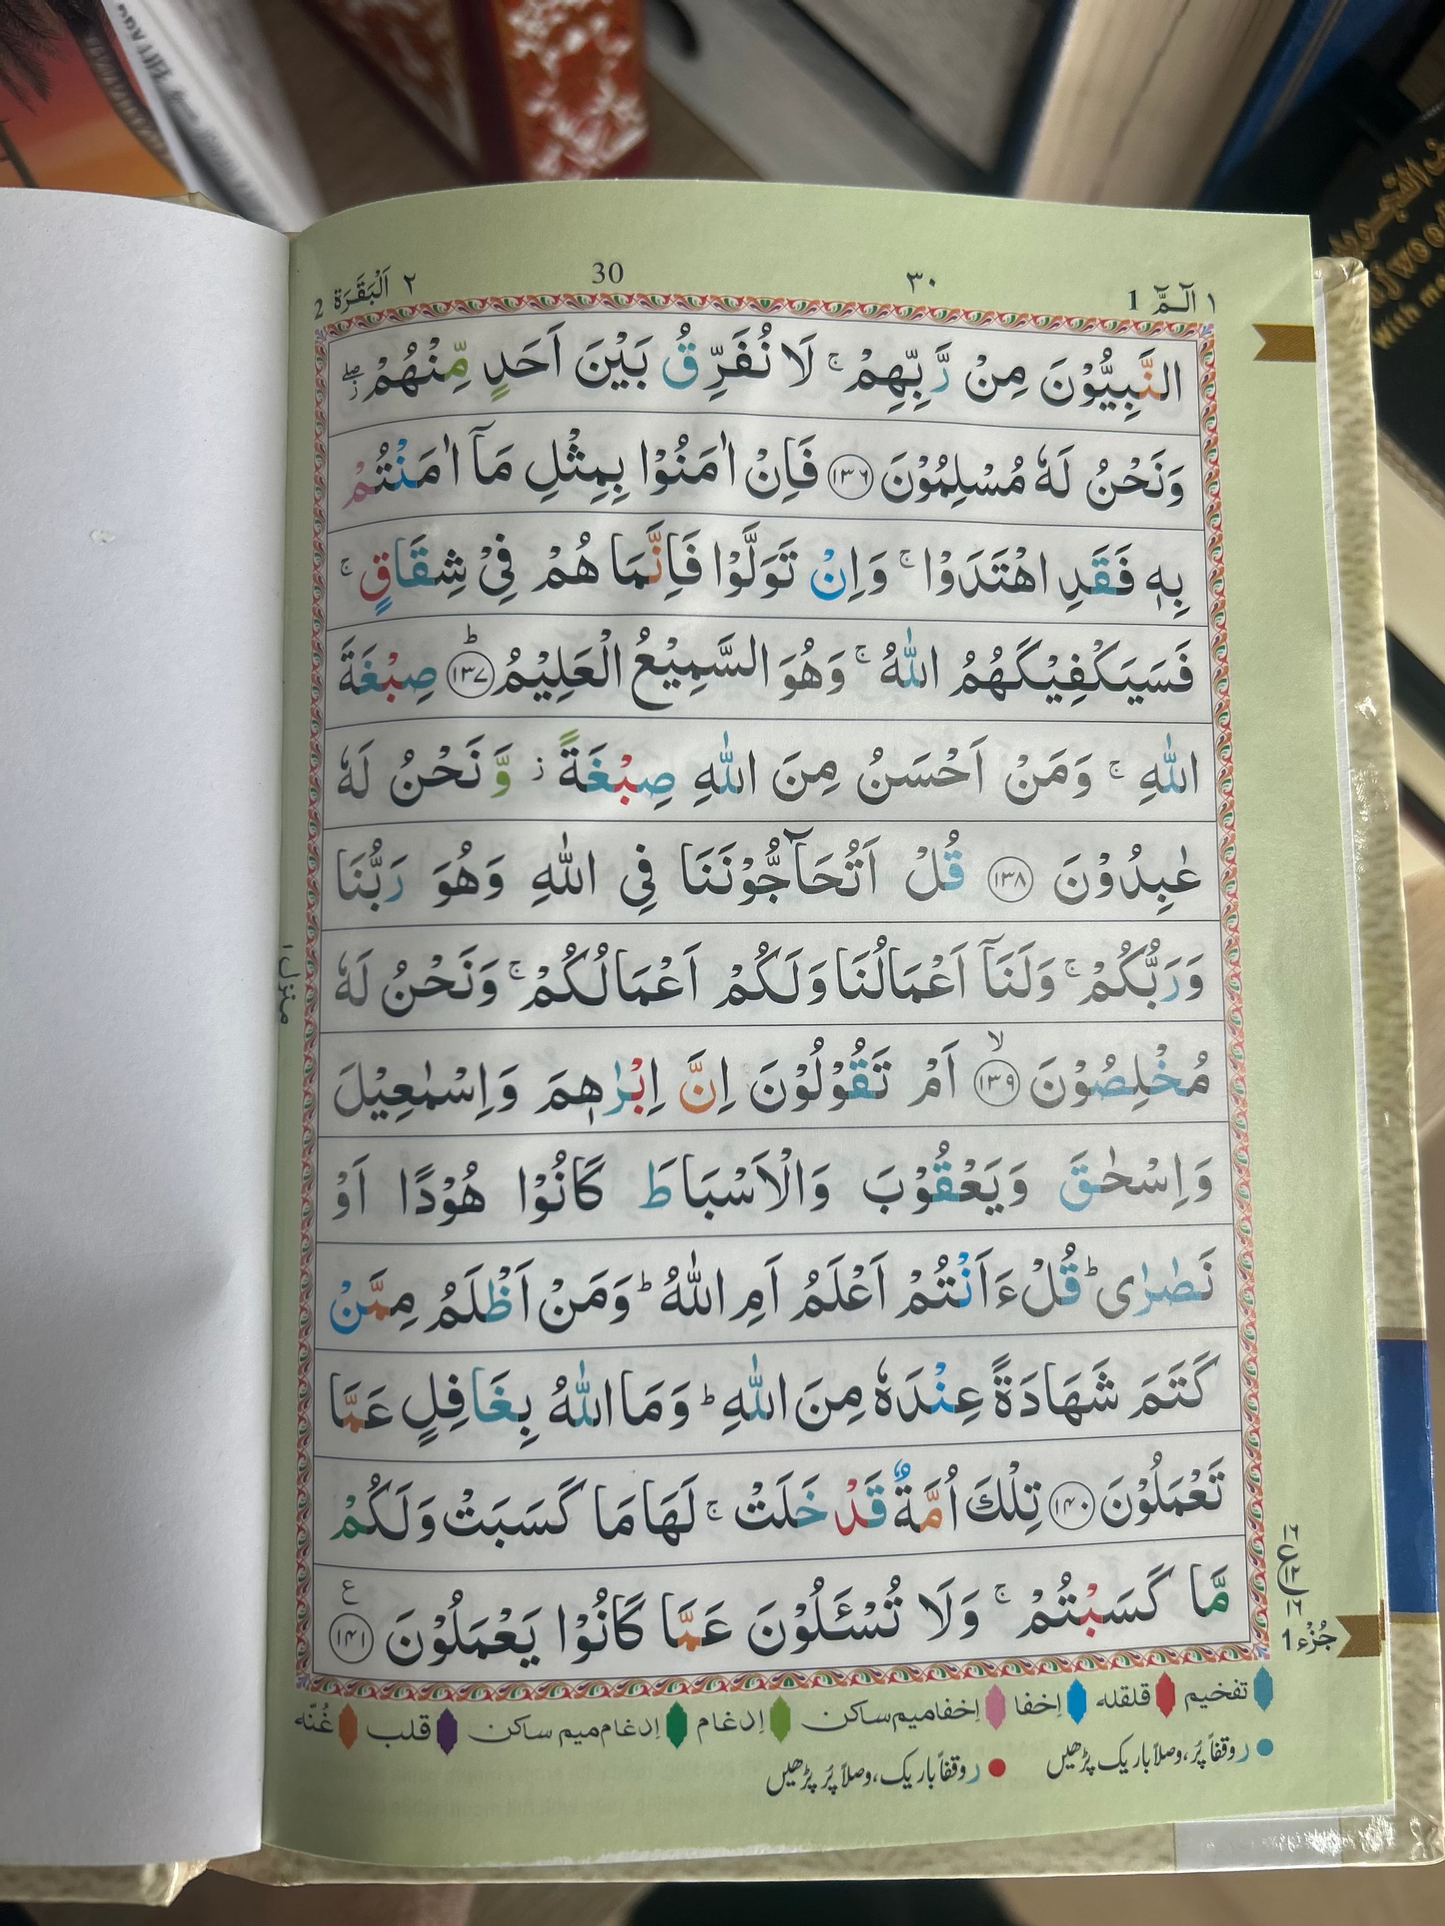 ١ الٓمّٓ 1
٣٠
30
٢ اَلْبَقَرَة 2
النَّبِيُّوْنَ مِنْ رَّبِّهِمْ ۚ لَا نُفَرِّقُ بَيْنَ اَحَدٍ مِّنْهُمْ ۖز
وَنَحْنُ لَهٗ مُسْلِمُوْنَ ﴿۱۳۶﴾ فَاِنْ اٰمَنُوْا بِمِثْلِ مَاۤ اٰمَنْتُمْ
بِهٖ فَقَدِ اهْتَدَوْا ۚ وَاِنْ تَوَلَّوْا فَاِنَّمَا هُمْ فِيْ شِقَاقٍ ۚ
فَسَيَكْفِيْكَهُمُ اللّٰهُ ۚ وَهُوَ السَّمِيْعُ الْعَلِيْمُ ﴿۱۳۷﴾ؕ صِبْغَةَ
اللّٰهِ ۚ وَمَنْ اَحْسَنُ مِنَ اللّٰهِ صِبْغَةً ز وَّنَحْنُ لَهٗ
عٰبِدُوْنَ ﴿۱۳۸﴾ قُلْ اَتُحَآجُّوْنَنَا فِي اللّٰهِ وَهُوَ رَبُّنَا
وَرَبُّكُمْ ۚ وَلَنَاۤ اَعْمَالُنَا وَلَكُمْ اَعْمَالُكُمْ ۚ وَنَحْنُ لَهٗ
مُخْلِصُوْنَ ﴿۱۳۹﴾ۙ اَمْ تَقُوْلُوْنَ اِنَّ اِبْرٰهٖمَ وَاِسْمٰعِيْلَ
وَاِسْحٰقَ وَيَعْقُوْبَ وَالْاَسْبَاطَ كَانُوْا هُوْدًا اَوْ
نَصٰرٰى ؕ قُلْ ءَاَنْتُمْ اَعْلَمُ اَمِ اللّٰهُ ؕ وَمَنْ اَظْلَمُ مِمَّنْ
كَتَمَ شَهَادَةً عِنْدَهٗ مِنَ اللّٰهِ ؕ وَمَا اللّٰهُ بِغَافِلٍ عَمَّا
تَعْمَلُوْنَ ﴿۱۴۰﴾ تِلْكَ اُمَّةٌ قَدْ خَلَتْ ۚ لَهَا مَا كَسَبَتْ وَلَكُمْ
مَّا كَسَبْتُمْ ۚ وَلَا تُسْـَٔلُوْنَ عَمَّا كَانُوْا يَعْمَلُوْنَ ﴿۱۴۱﴾ ع
منزل ۱
١٦
ع
١٢
١٦
جُزْء 1
تفخيم قلقله اِخفا اِخفاميم ساكن اِدغام اِدغام ميم ساكن قلب غُنّه
ر وقفاً پُر، وصلاً باریک پڑھیں
ر وقفاً باریک، وصلاً پُر پڑھیں
With